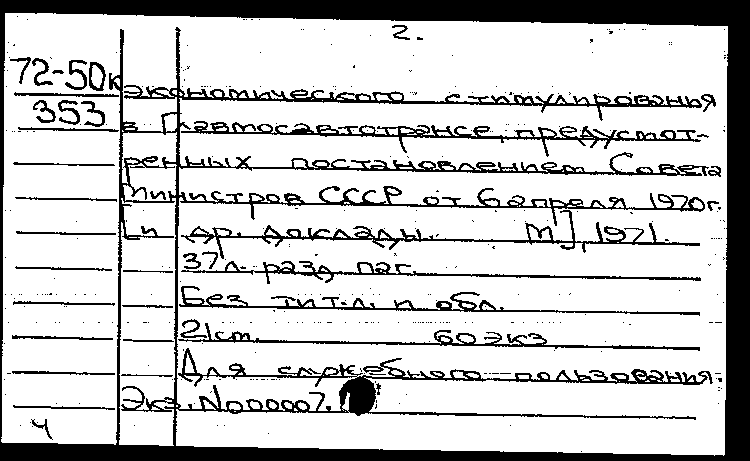 2.
72-50к
353
экономического стимулированья
в Главмосавтотрансе, предусмот-
ренных постановлением Совета
Министров СССР от 6 апреля 1970г.
[и др. доклады. М], 1971.
37л. разд. паг.
Без тит.л. и обл.
21см. 60 экз
Для служебного пользования.
Экз. №000007.
ч